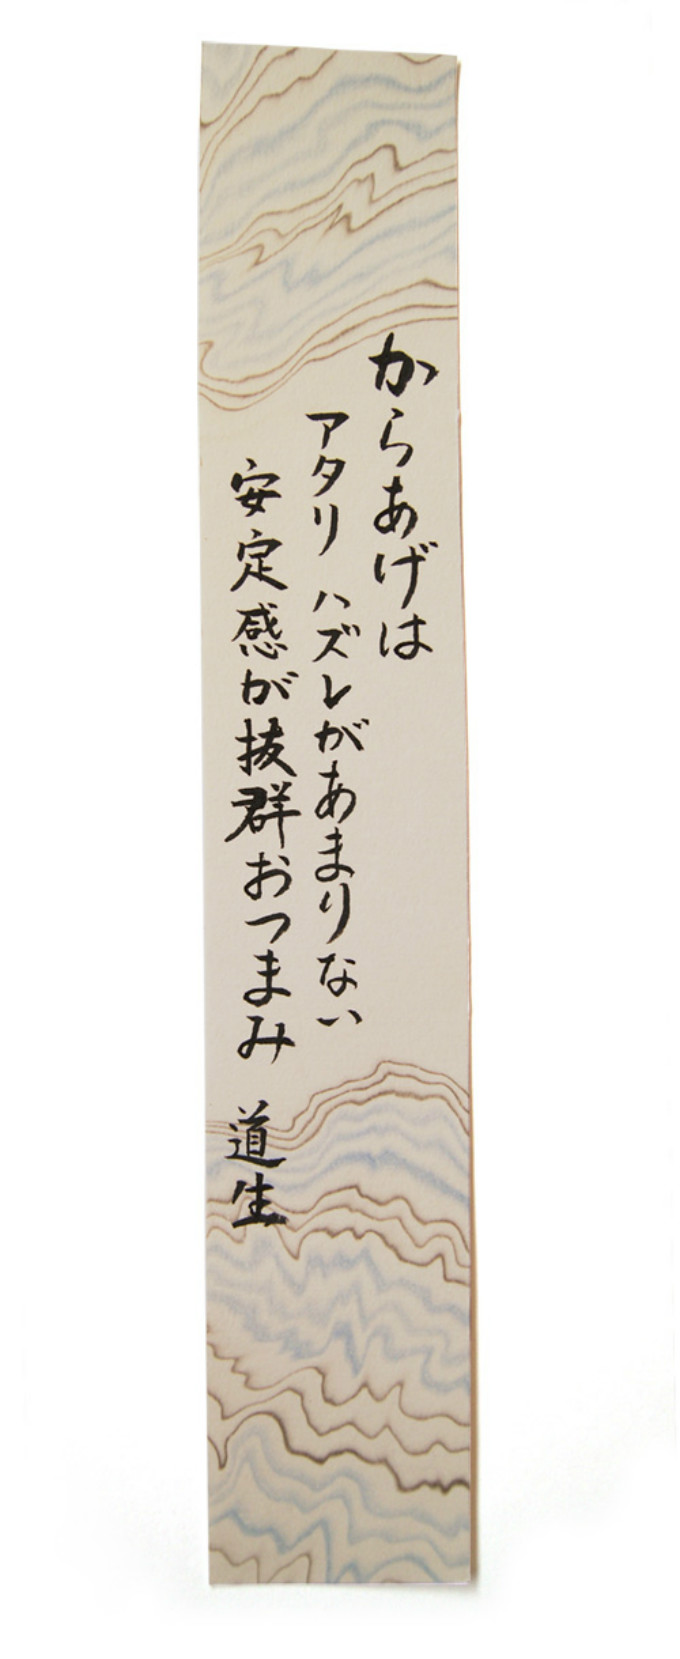 からあげは
アタリ ハズレがあまりない
安定感が抜群おつまみ 道生